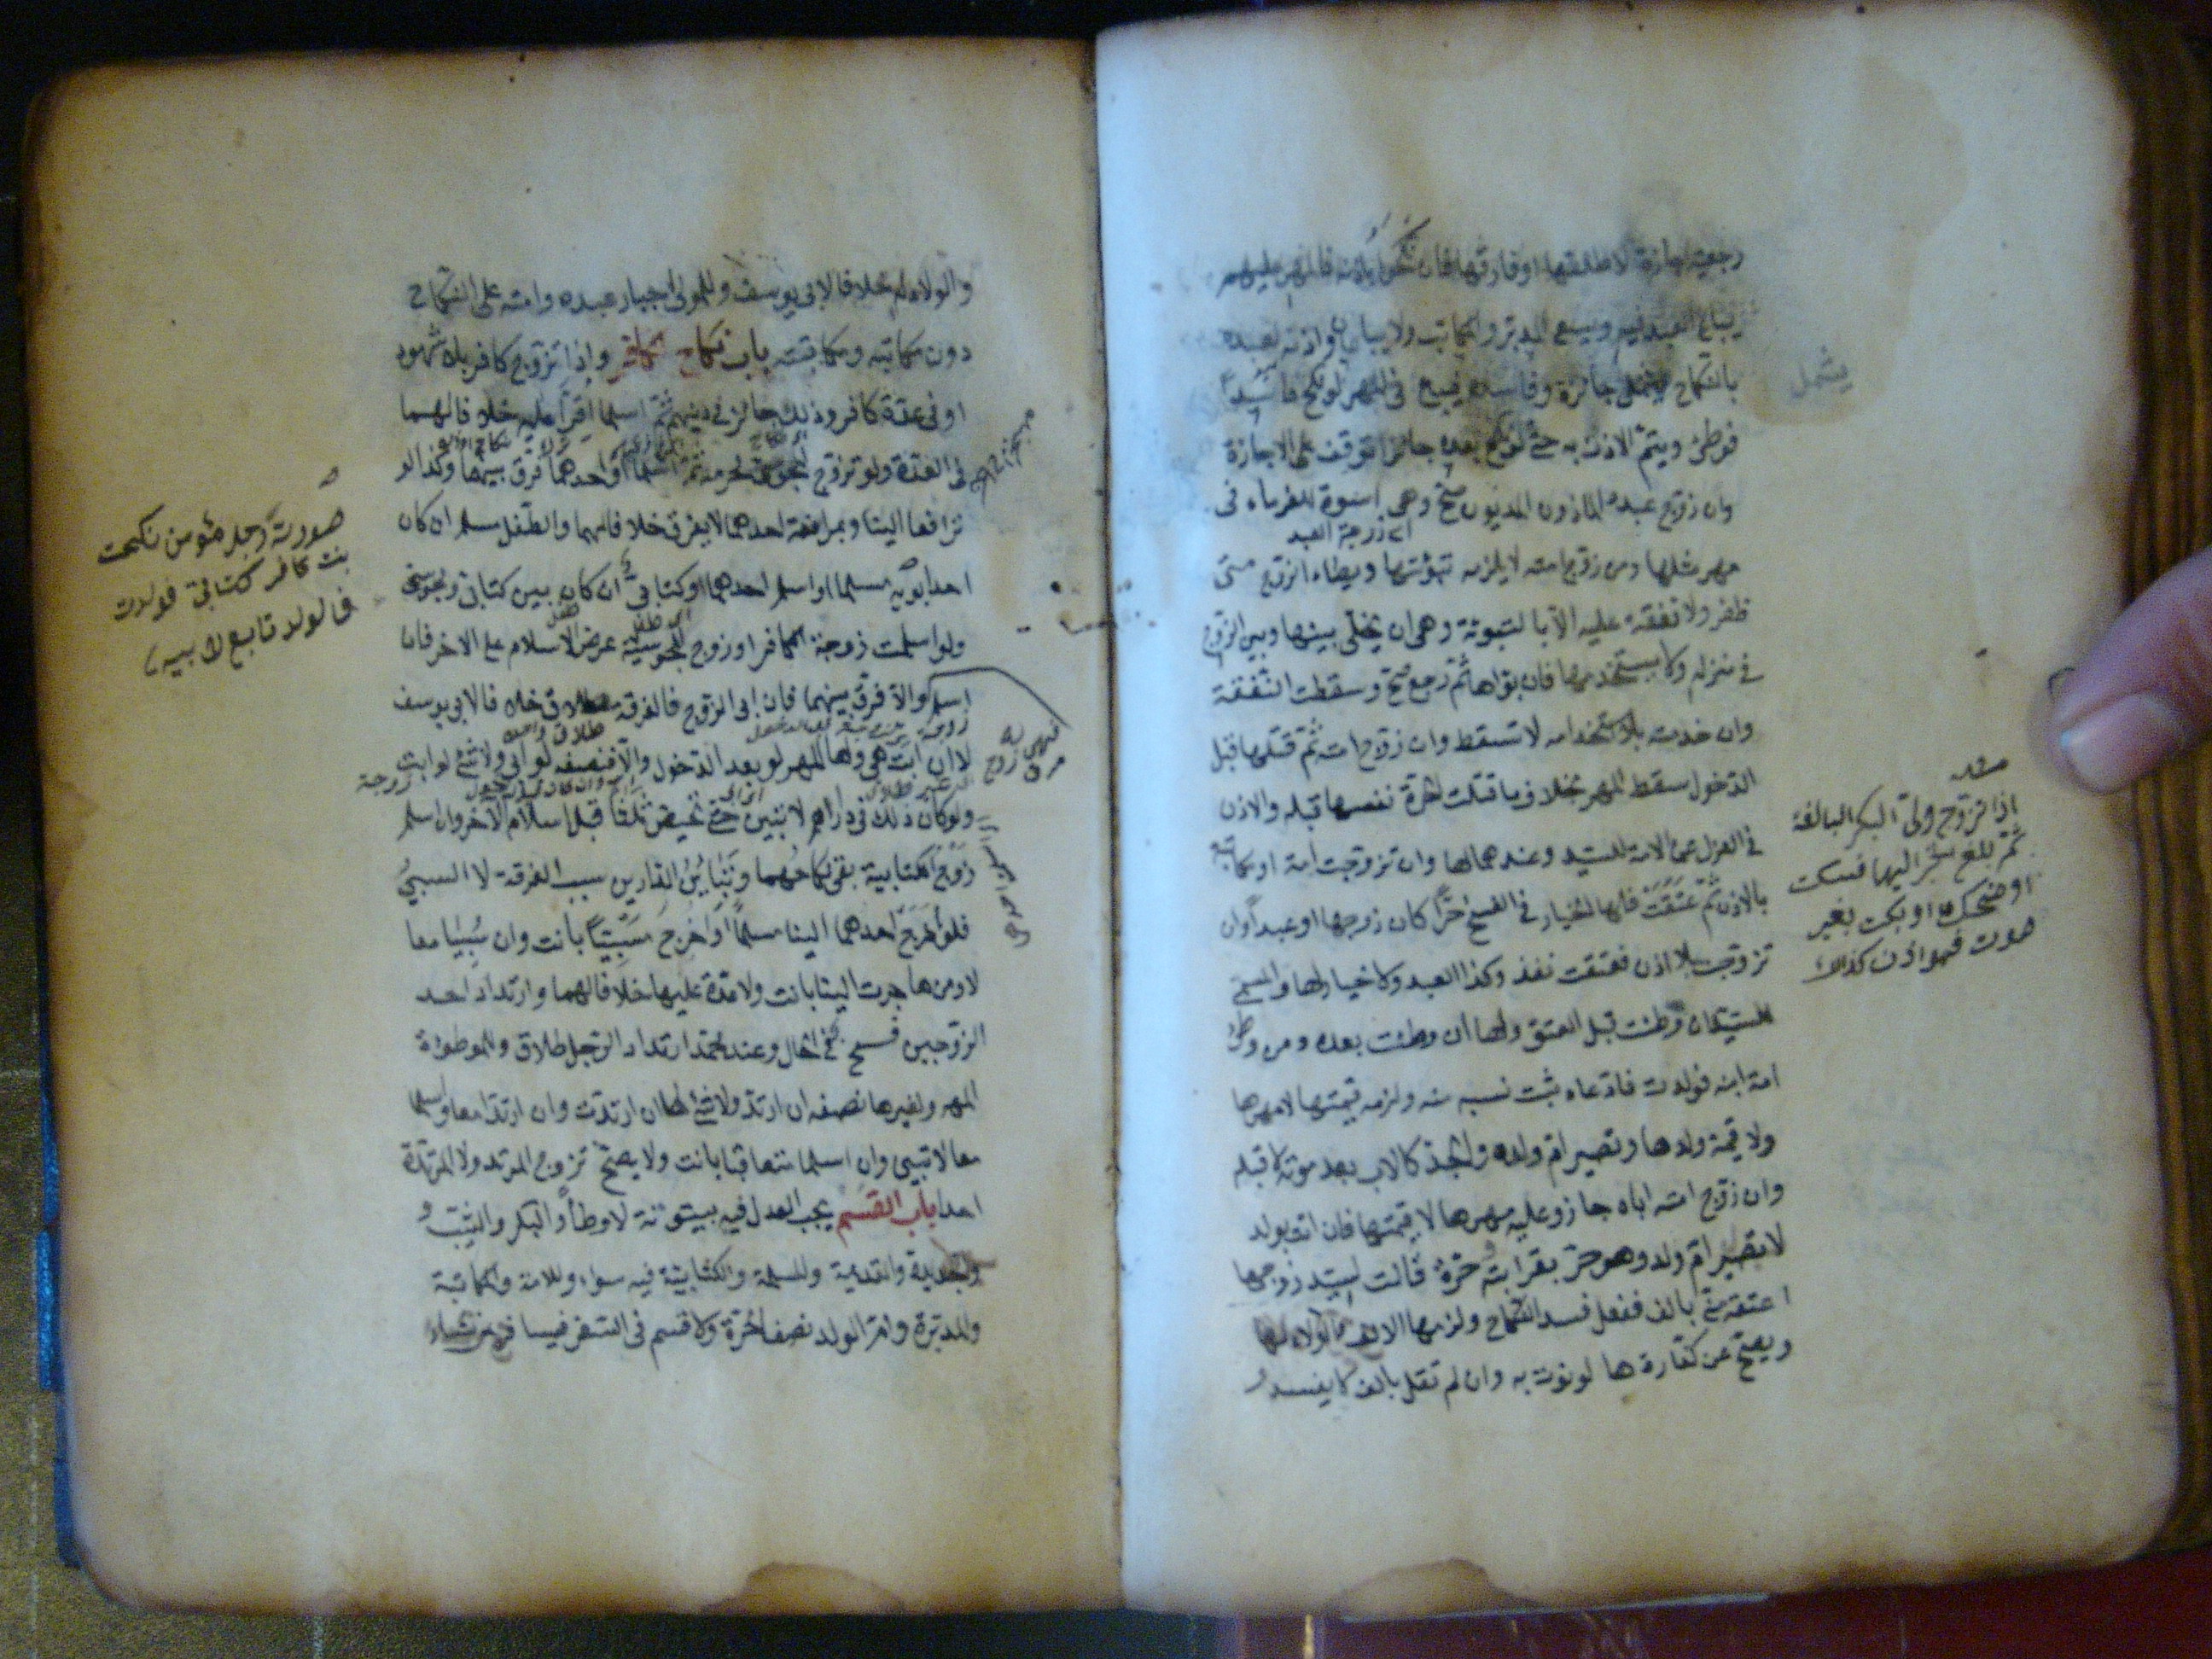 رجعية اجازة لا طلقها او فارقها فان نكحوا بالاذن فالمهر عليهم
يباع العبد فيه ويسعى المدبر والمكاتب ولا يباعان واذنه لعبده
بالنكاح يشمل جائزه وفاسده فيبيع في المهر لو نكح فاسدا
فوطئ ويتم الاذن به حتى لو نكح بعده جائزا توقف على الاجازة
وان زوج عبده الماذون المديون صح وهي اسوة الغرماء في
اى زوجة العبد
مهر مثلها ومن زوج امته لا يلزمه تبوئتها ويطاء الزوج متى
ظفر ولا نفقة عليه الا بالتبوئة وهي ان يخلى بينها وبين الزوج
في منزله ولا يستخدمها فان بواها ثم رجع صح وسقطت النفقة
وان خدمته بلا استخدامه لا تسقط وان زوج امته ثم قتلها قبل
الدخول سقط المهر بخلاف ما قتلت الحرة نفسها قبله والاذن
في العزل عن الامة للسيد وعندهما لها وان تزوجت امة او مكاتبة
بالاذن ثم عتقت فلها الخيار في الفسخ حرا كان زوجها او عبدا وان
تزوجت بلا اذن فعتقت نفذ وكذا العبد ولا خيار لها والمسمى
للسيد ان وطئت قبل العتق ولها ان وطئت بعده ومن وطئ
امة ابنه فولدت فادعاه يثبت نسبه منه ولزمه قيمتها لا مهرها
ولا قيمة ولدها وتصير ام ولده والجد كالاب بعد موته لا قبله
وان زوج امته اباه جاز وعليه مهرها لا قيمتها فان اتت بولد
لا تصير ام ولد وهو حر بقرابته حرة قالت لسيد زوجها
اعتقه عني بالف ففعل فسد النكاح ولزمها الالف والولاء لها
ويصح عن كفارتها لو نوت به وان لم تقل بالف لا يفسد و
يشمل
اذا تزوج ولى البكر البالغة
ثم بلغ خبر اليها فسكت
او ضحك او بكت بغير
صوت فهو اذن كذلك
والولاء له خلافا لابي يوسف وللمولى اجبار عبده وامته على النكاح
دون مكاتبه ومكاتبته باب نكاح الكافر واذا تزوج كافر بلا شهود
او في عدة كافر وذلك جائز في دينهم ثم اسلما اقرا عليه خلافا لهما
في العدة ولو تزوج المجوسي محرمه ثم اسلما او احدهما فرق بينهما وكذا لو
ترافعا الينا وبمرافعة احدهما لا يفرق خلافا لهما والطفل مسلم ان كان
احد ابويه مسلما او اسلم احدهما وكتابي ان كان بين كتابي ومجوسي
ولو اسلمت زوجة الكافر او زوج المجوسية عرض الاسلام على الاخر فان
اسلم والا فرق بينهما فان ابى الزوج فالفرقة طلاق خلافا لابي يوسف
لا ان ابت هي ولها المهر لو بعد الدخول والا فنصفه لو ابى ولا شئ لو ابت
ولو كان ذلك في دارهم لا تبين حتى تحيض ثلثا قبل اسلام الاخر وان اسلم
زوج الكتابية بقى نكاحهما وتباين الدارين سبب الفرقة لا السبي
فلو خرج احدهما الينا مسلما او اخرج مسبيا بانت وان سبيا معا
لا ومن هاجرت الينا بانت ولا عدة عليها خلافا لهما وارتداد احد
الزوجين فسخ في الحال وعند محمد ارتداد الرجل طلاق والموطؤة
المهر ولغيرها نصفه ان ارتد ولا شئ لها ان ارتدت وان ارتدا معا واسلما
معا لا تبين وان اسلما متعاقبا بانت ولا يصح تزوج المرتد ولا المرتدة
احدا باب القسم يجب العدل فيه بيتوتة لا وطأ والبكر والثيب و
والجديدة والقديمة والمسلمة والكتابية فيه سواء وللامة والمكاتبة
والمدبرة وام الولد نصف الحرة ولا قسم في السفر فيسافر بمن شاء
صورته رجل مؤمن نكحت
بنت كافر كتابي فولدت
فالولد تابع لابيه